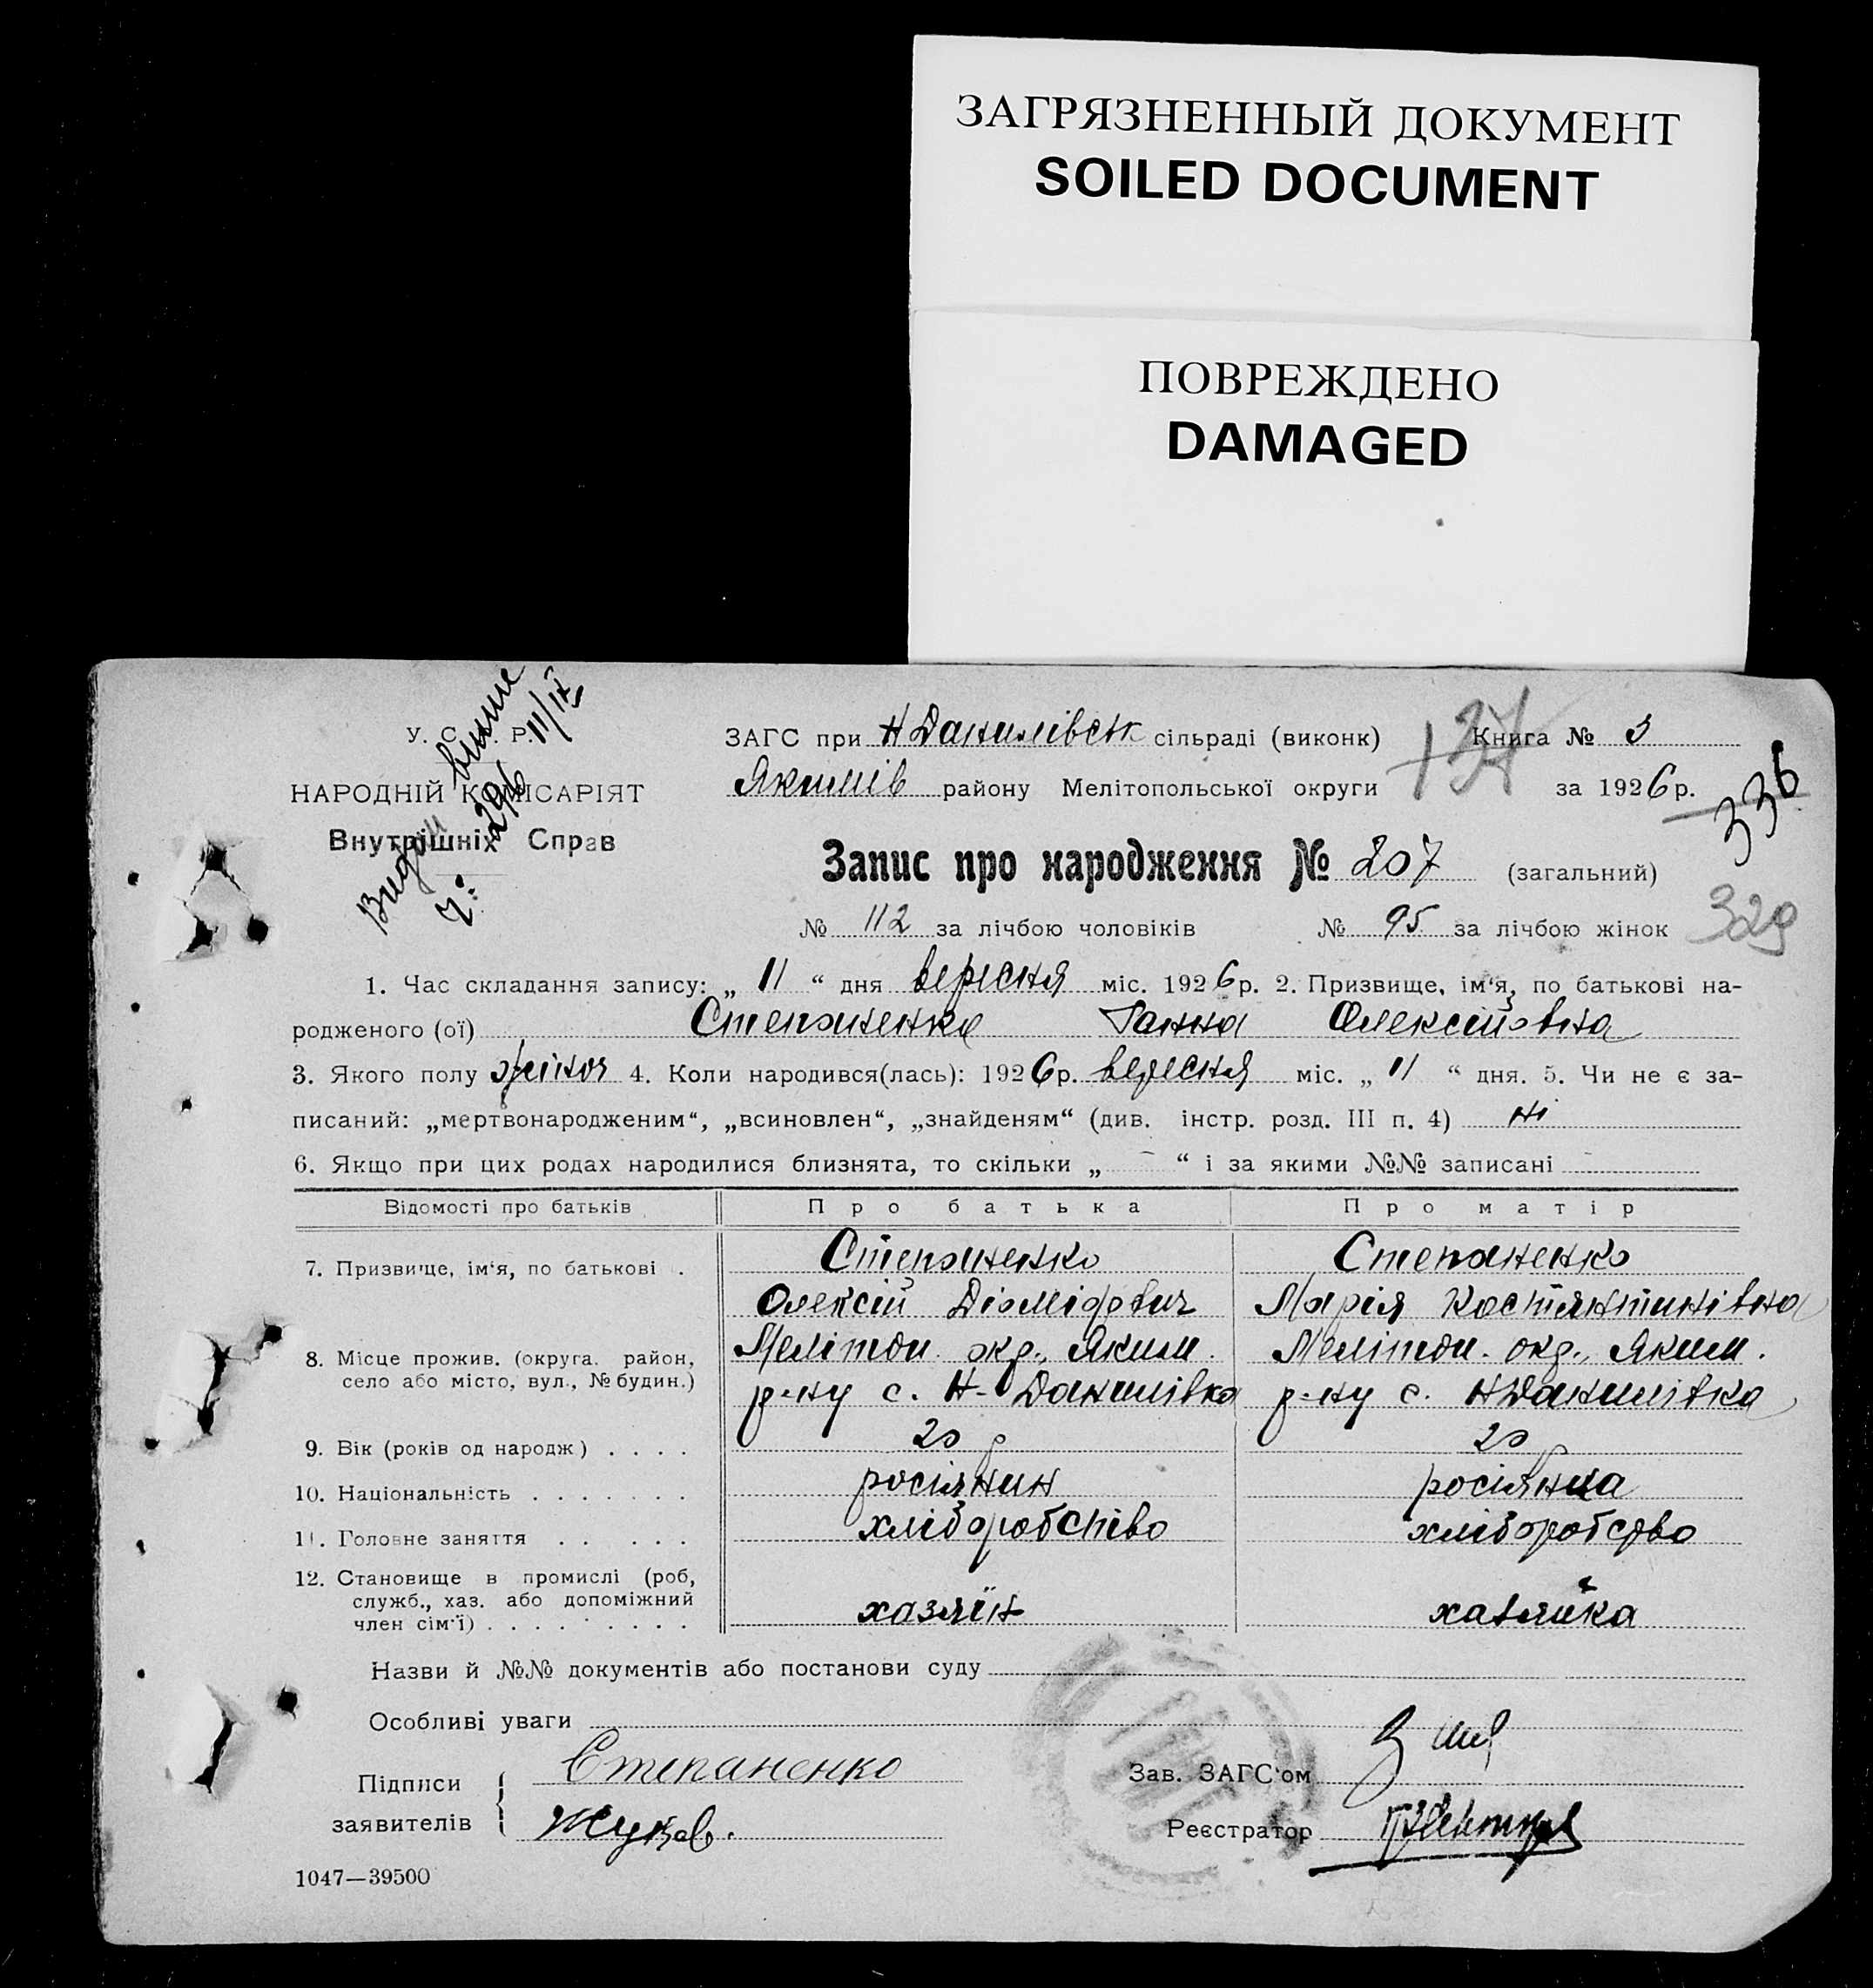 ЗАГРЯЗНЕННЫЙ ДОКУМЕНТ
SOILED DOCUMENT
ПОВРЕЖДЕНО
DAMAGED
У. С. Р. Р.
НАРОДНІЙ КОМІСАРІЯТ
Внутрішніх Справ
Видан випис
ч: 296 11/IX
ЗАГС при Н Данилівськ сільраді (виконк) Книга № 3
Якимів району Мелітопольської округи 137 за 1926 р.
336
Запис про народження № 207 (загальний)
№ 112 за лічбою чоловіків № 95 за лічбою жінок 329
1. Час складання запису: „ 11 “ дня вересня міс. 1926 р. 2. Призвище, ім'я, по батькові на-
родженого (ої) Степаненко Ганна Олексіївна
3. Якого полу жіноч 4. Коли народився(лась): 1926 р. вересня міс. „ 11 “ дня. 5. Чи не є за-
писаний: „мертвонародженим“, „всиновлен“, „знайденям“ (див. інстр. розд. III п. 4) ні
6. Якщо при цих родах народилися близнята, то скільки „ - “ і за якими №№ записані -
Відомості про батьків Про батька Про матір
7. Призвище, ім'я, по батькові . Степаненко Степаненко
Олексій Діомідович Марія Костянтинівна
8. Місце прожив. (округа. район, Мелітоп. окр., Яким. Мелітоп. окр., Яким.
село або місто, вул., № будин.) р-ну с. Н-Данилівка р-ну с. НДанилівка
9. Вік (років од народж) . . . . 20 р 20 р
10. Національність . . . . . . . росіянин росіянка
11. Головне заняття . . . . . хліборобство хліборобство
12. Становище в промислі (роб,
служб., хаз. або допоміжний
член сім'ї) . . . . . . . . хазяїн хазяйка
Назви й №№ документів або постанови суду
Особливі уваги
Підписи заявителів { Степаненко Зав. ЗАГС'ом
Жуков. Реєстратор
1047—39500